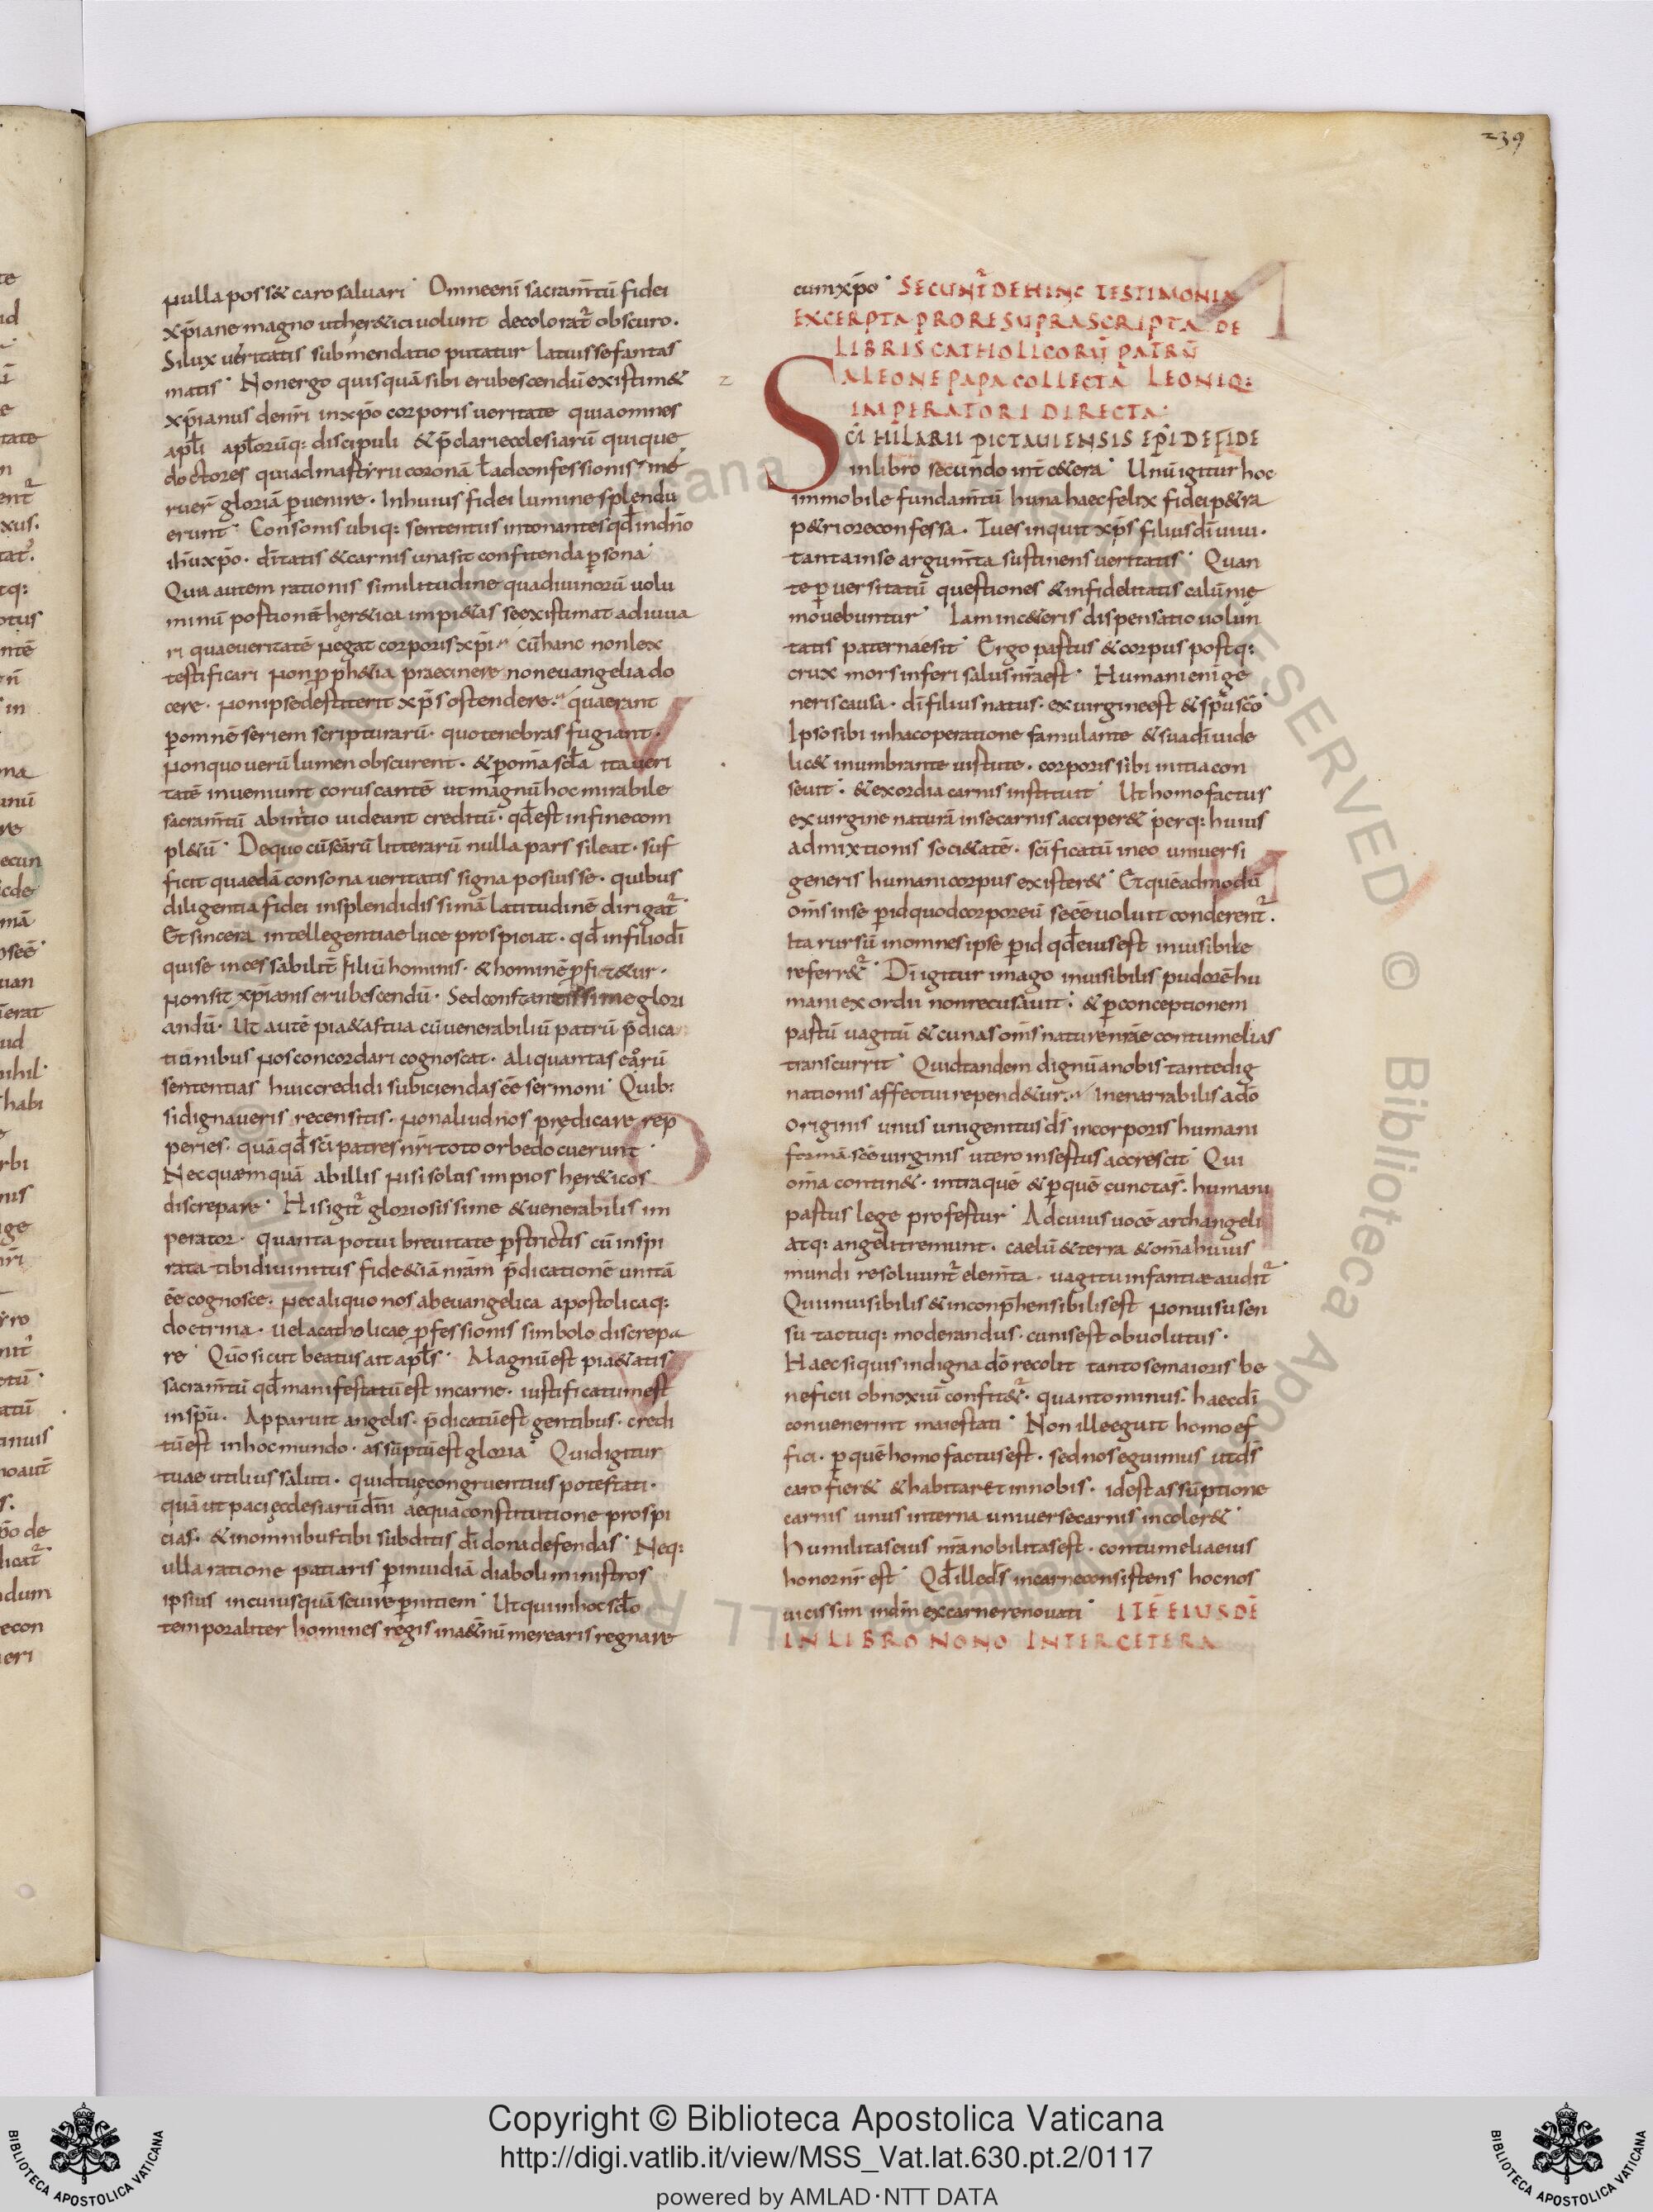 239
nulla poss& caro saluari· Omne eni sacram̄tū fidei
xp̄iane magno ut her&ici uolunt decolorat̄ obscuro·
Si lux ueritatis sub mendatio putatur latuisse fantas
matis· Non ergo quisquā sibi erubescendū existim&
xp̄ianus den̄ri in xp̄o corporis ueritate quia omnes
apl̄i apl̄orūq: discipuli & p̄clari ecclesiarū quique
doctores qui ad martyrii coronā ł ad confessionis me
ruer̄ gloriā ꝑuenire· In huius fidei lumine splendu
erunt· Consonis ubiq: sententiis intonantes qd̄ in dn̄o
ih̄u xp̄o· dn̄itatis & carnis una sit confitenda ꝑsona·
Qua autem rationis similitudine qua diuinorū uolu
minū portionē her&ica impi&as se existimat adiuua
ri quae ueritatē negat corporis xp̄i· Cū hanc non lex
testificari non ꝓph&ia praecinere non euangelia do
cere· non ipse destiterit xp̄s ostendere· quaerant
ꝑ omnē seriem scripturarū· quo tenebras fugiant·
non quo uerū lumen obscurent· & ꝑ om̄a scl̄a ita ueri
tatē inueniunt coruscantē ut magnū hoc mirabile
sacram̄tū ab initio uideant creditū· qd̄ est in fine com
pl&ū· De quo cū scārū litterarū nulla pars sileat· suf
ficit quaedā consona ueritatis signa posuisse· quibus
diligentia fidei in splendidissimā latitudinē dirigat̄·
Et sincera intellegentiae luce prospiciat· qd̄ in filio dī
qui se incessabilit̄ filiū hominis· & hominē ꝓfit&ur·
non sit xp̄ianis erubescendū· Sed constantissime glori
andū· Ut autē pi&as tua cū uenerabiliū patrū p̄dica
tionibus nos concordari cognoscat· aliquantas eorū
sententias huic credidi subiciendas eē sermoni· Quib:
si dignaueris recensitis· non aliud nos prędicare rep
peries· quā qd̄ sc̄i patres nr̄i toto orbe docuerunt·
Nec quæmquā ab illis nisi solus impios her&icos
discrepare· His igit̄ gloriosissime & uenerabilis im
perator· quanta potui breuitate ꝑstrictis cū inspi
rata tibi diuinitus fide &iā nr̄am p̄dicationē unitā
eē cognosce· nec aliquo nos ab euangelica apostolicaq:
doctrina· uel a catholicae ꝓfessionis simbolo discrepa
re· Qm̄o sicut beatus ait apl̄s· Magnū est pi&atis
sacram̄tū qd̄ manifestatū est in carne· iustificatum est
in sp̄u· Apparuit angelis· p̄dicatū est gentibus· credi
tū est in hoc mundo· assūptū est gloria· Quid igitur
tuae utilius saluti· quid tuę congruentius potestati·
quā ut paci ęcclesiarū dn̄i aequa constitutione prospi
cias· & in omnibus tibi subditis dī dona defendas· Neq:
ulla ratione patiaris ꝑ inuidiā diaboli ministros
ipsius in cuiusquā seuire ꝑnitiem· Ut qui in hoc scl̄o
temporaliter homines regis in a&̄nū merearis regnare
cum xp̄o· SECUNT̄ DEHINC TESTIMONIA
EXCERPTA PRO RE SUPRASCRIPTA DE
LIBRIS CATHOLICORŪ PATRŪ
A LEONE PAPA COLLECTA LEONIQ:
IMPERATORI DIRECTA·
SC̄I HILARII PICTAUIENSIS EP̄I DE FIDE
in libro secundo int̄ c&era· Unū igitur hoc
immobile fundam̄tū· hu na haec felix fidei p&ra
p&ri ore confessa· Tu es inquit xp̄s filius dī uiui·
tanta in se argum̄ta sustinens ueritatis· Quan
te ꝑuersitatū questiones & infidelitatis calūnię
mouebuntur· Iam in c&eris dispensatio uolun
tatis paternae sit· Ergo partus & corpus postq:
crux mors inferi salus nr̄a est· Humani eni ge
neris causa· dī filius natus· ex uirgine est & sp̄u sc̄o·
Ipso sibi in hac operatione famulante & sua dī uide
lic& inumbrante uirtute· corporis sibi initia con
seuit· & exordia carnis instituit· Ut homo factus
ex uirgine naturā in se carnis acciper& perq: huius
admixtionis soci&atē· sc̄ificatū in eo uniuersi
generis humani corpus exister&· Et quēadmodū
om̄s in se ꝑ id quod corporeū se eē uoluit conderent̄·
Ita rursū in omnes ipse ꝑ id qd̄ eius est inuisibile
referr&̄· Dī igitur imago inuisibilis pudorē hu
mani exordii non recusauit· & ꝑ conceptionem
partū uagitū & cunas om̄s nature nr̄ae contumelias
transcurrit· Quid tandem dignū a nobis tante dig
nationis affectui repend&ur· Inenarrabilis a dō
originis unus unigenitus d̄s in corporis humani
formā scē uirginis utero insertus accrescit· Qui
om̄a contin&· intra quē & ꝑ quē cunctas· humani
partus lege profertur· Ad cuius uocē archangeli
atq: angeli tremunt· caelū & terra & om̄a huius
mundi resoluunt̄ elem̄ta· uagitu infantiae audit̄·
Qui inuisibilis & inconp̄hensibilis est non uisu sen
su tactuq: moderandus· cunis est obuolutus·
Haec si quis indigna dō recolit tanto se maioris be
neficii obnoxiū confit&̄· quanto minus· haec dī
conuenerint maiestati· Non ille eguit homo ef
fici· ꝑ quē homo factus est· sed nos eguimus ut d̄s
caro fier& & habitaret in nobis· id est assūptione
carnis unus interna uniuerse carnis incoler&·
humilitas eius nr̄a nobilitas est· contumelia eius
honor nr̄ est· Qd̄ ille d̄s in carne consistens hoc nos
uicissim in dm̄ ex carne renouati· ITĒ EIUSDĒ
IN LIBRO NONO INTER CETERA
Copyright © Biblioteca Apostolica Vaticana
http://digi.vatlib.it/view/MSS_Vat.lat.630.pt.2/0117
powered by AMLAD·NTT DATA
BIBLIOTECA APOSTOLICA VATICANA
BIBLIOTECA APOSTOLICA VATICANA